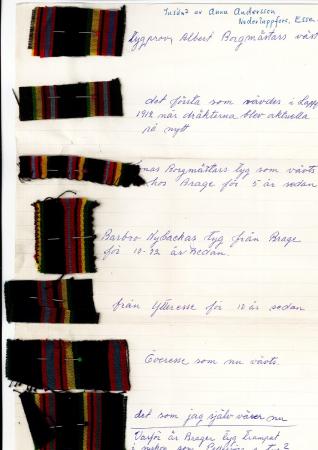 Insänt av Anna Andersson
Nederlappfors, Esse.
Tygprov, Albert Borgmästars väst
det första som vävdes i Lapp
1912 när dräkterna blev aktuella
på nytt
Borgmästars tyg som vävts
hos Brage för 5 år sedan
Barbro Nybackas tyg från Brage
för 10-12 år sedan.
från Ytteresse för 10 år sedan
Överesse som nu vävts.
det som jag själv väver nu
Varför är Brages tyg trampat
i som